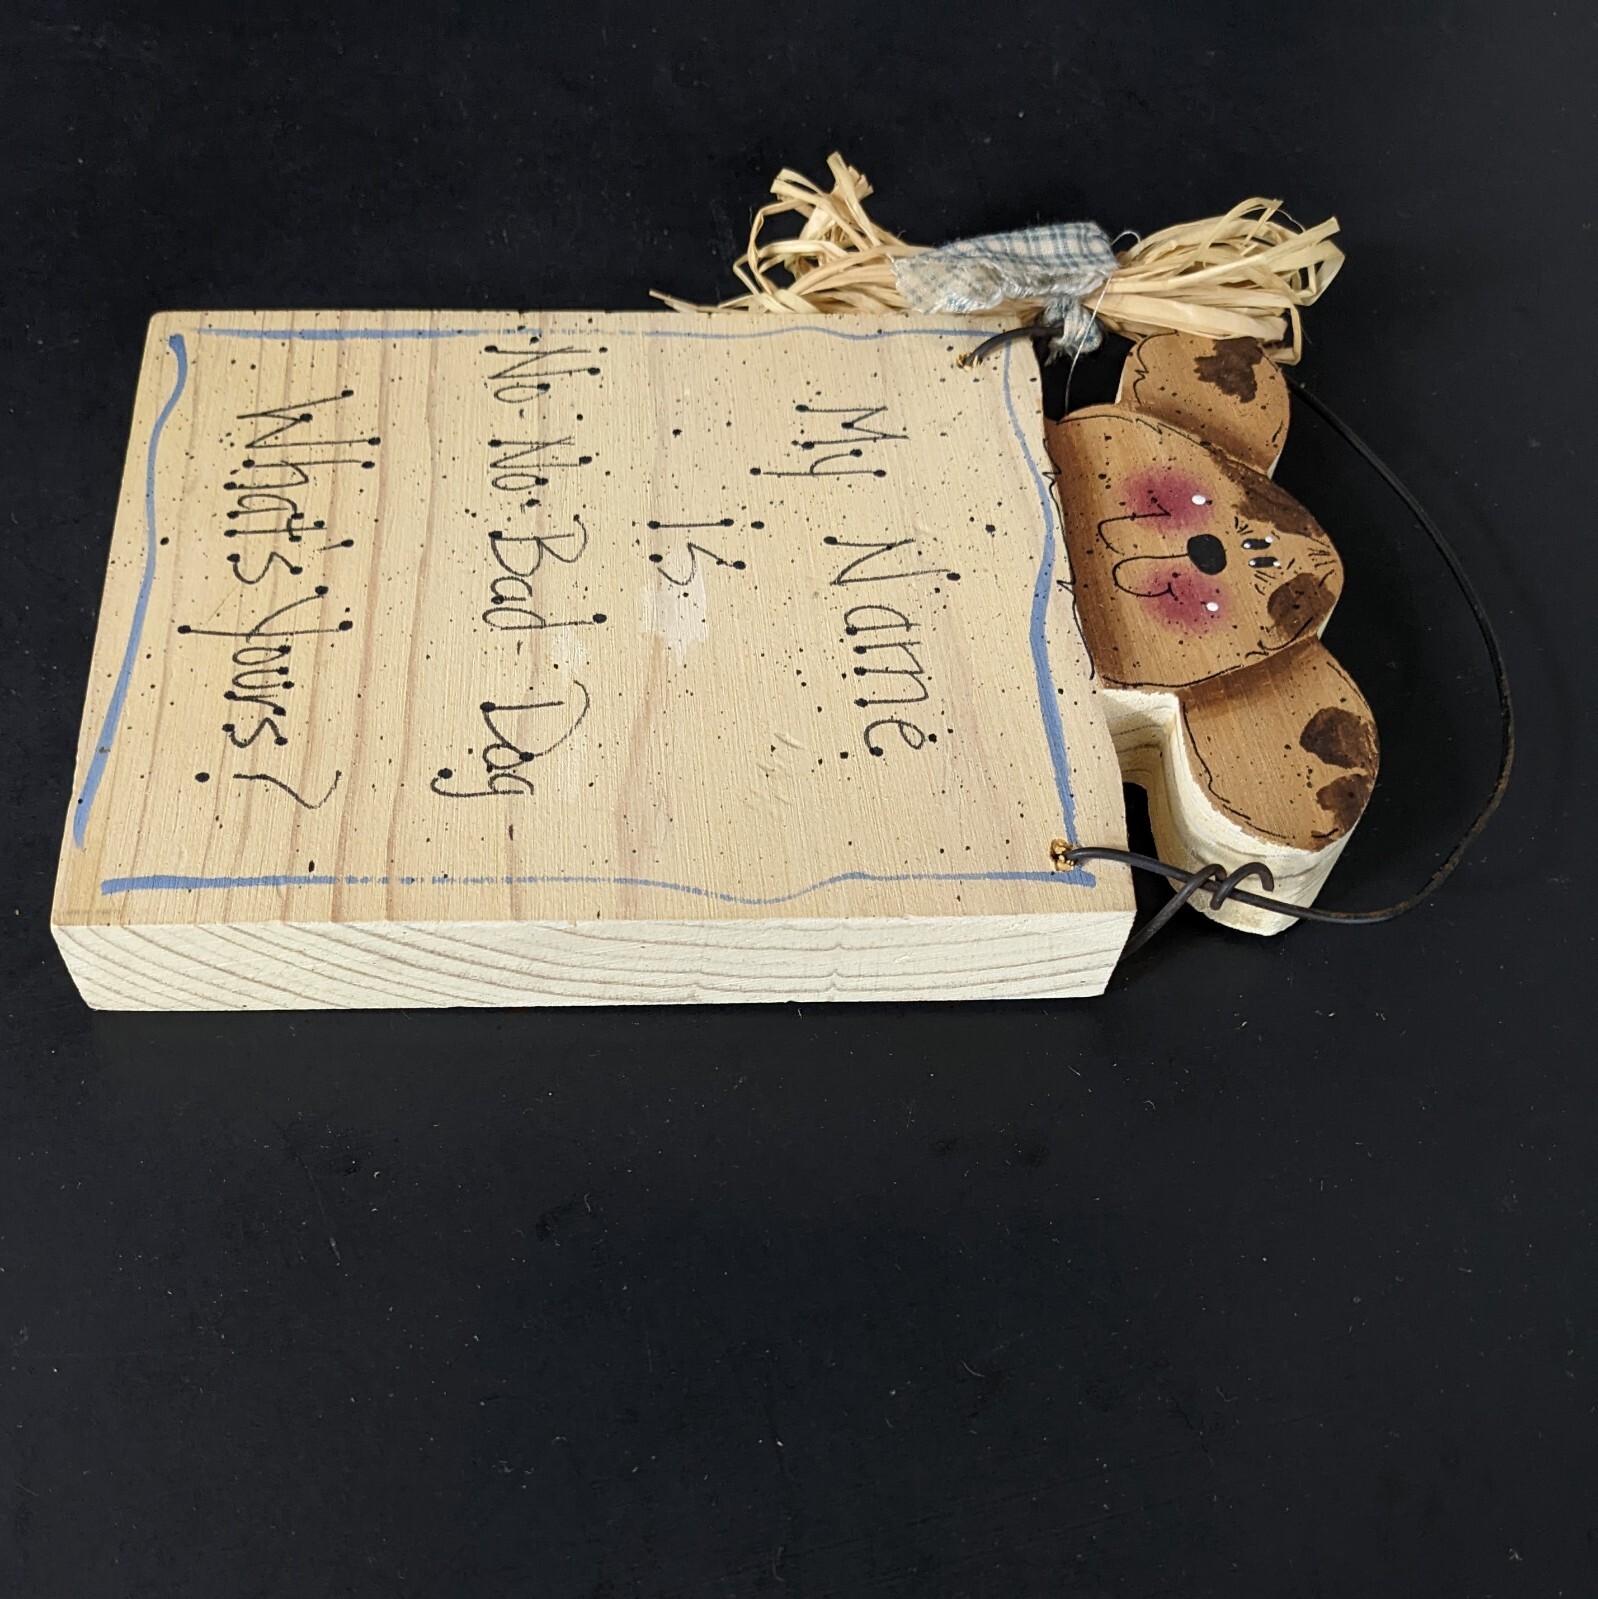 My Name
is
No-No-Bad-Dog
What's Yours?